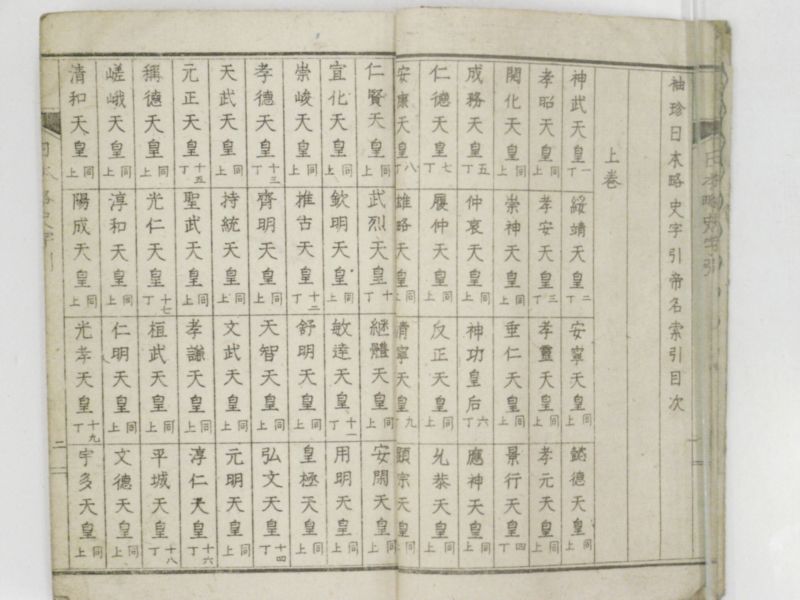 日本略史字引
一
袖珍日本略史字引帝名索引目次
上卷
神武天皇 一丁 綏靖天皇 二丁 安寧天皇 同上 懿德天皇 同上
孝昭天皇 同上 孝安天皇 三丁 孝靈天皇 同上 孝元天皇 同上
開化天皇 同上 崇神天皇 同上 垂仁天皇 同上 景行天皇 四丁
成務天皇 五丁 仲哀天皇 同上 神功皇后 六丁 應神天皇 同上
仁德天皇 七丁 履仲天皇 同上 反正天皇 同上 允恭天皇 同上
安康天皇 八丁 雄略天皇 清寧天皇 九丁 顕宗天皇 同上
仁賢天皇 同上 武烈天皇 十丁 継體天皇 同上 安閑天皇 同上
宣化天皇 同上 欽明天皇 同上 敏達天皇 十一丁 用明天皇 同上
崇峻天皇 同上 推古天皇 十二丁 舒明天皇 同上 皇極天皇 同上
孝德天皇 十三丁 齊明天皇 同上 天智天皇 同上 弘文天皇 十四丁
天武天皇 同上 持統天皇 同上 文武天皇 同上 元明天皇 同上
元正天皇 十五丁 聖武天皇 同上 孝謙天皇 同上 淳仁天皇 十六丁
稱德天皇 同上 光仁天皇 十七丁 桓武天皇 同上 平城天皇 十八丁
嵯峨天皇 同上 淳和天皇 同上 仁明天皇 同上 文德天皇 同上
清和天皇 同上 陽成天皇 同上 光孝天皇 十九丁 宇多天皇 同上
二